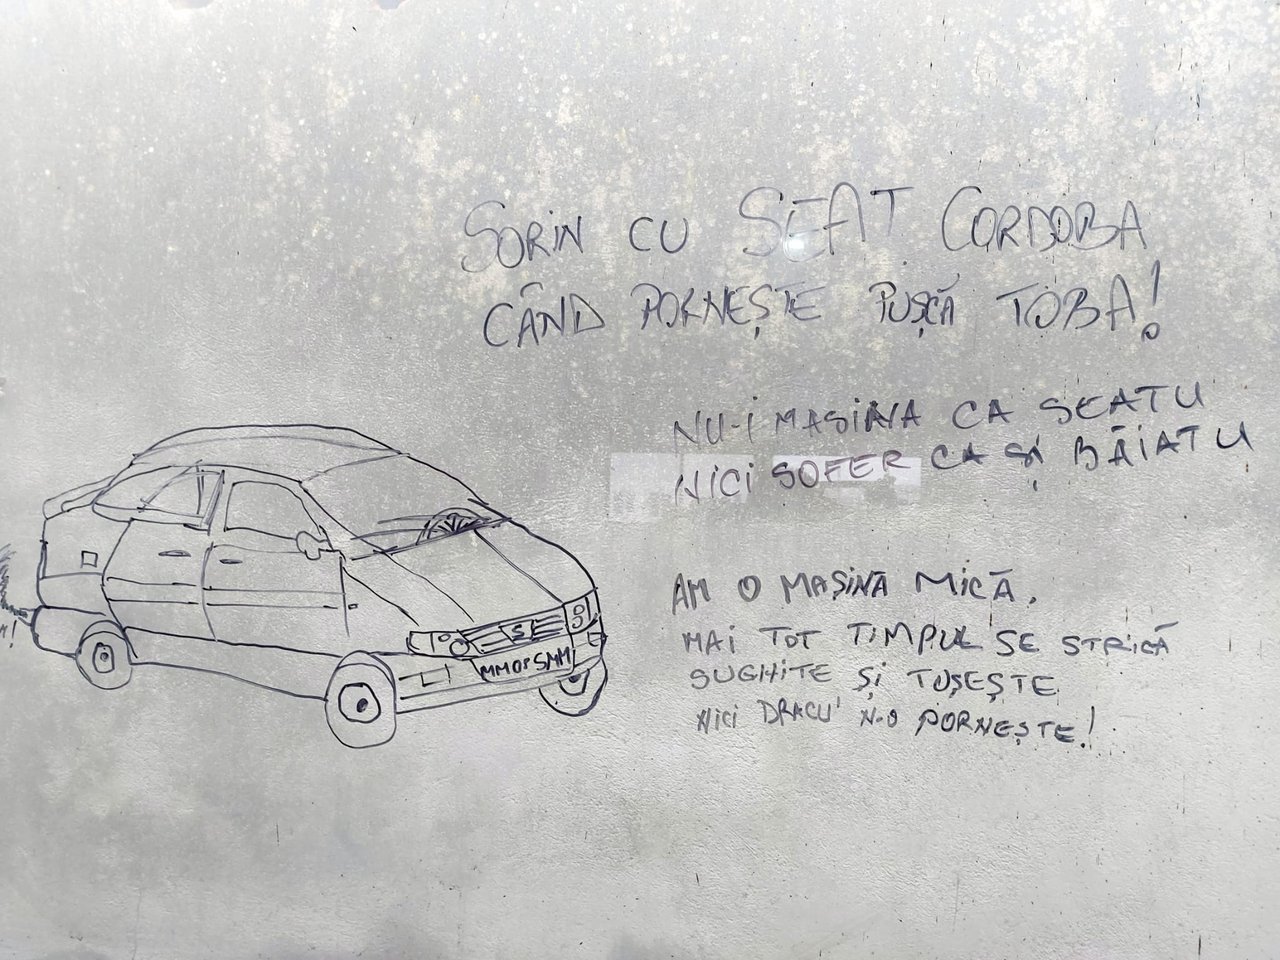 SORIN CU SEAT CORDOBA
CÂND PORNEȘTE PUȘCĂ TOBA!
NU-I MASINA CA SEATU
NICI SOFER CA ȘI BĂIATU
AM O MAȘINĂ MICĂ,
MAI TOT TIMPUL SE STRICĂ
SUGHITE ȘI TUȘEȘTE
NICI DRACU' N-O PORNEȘTE!
SE
MM 08 SMM